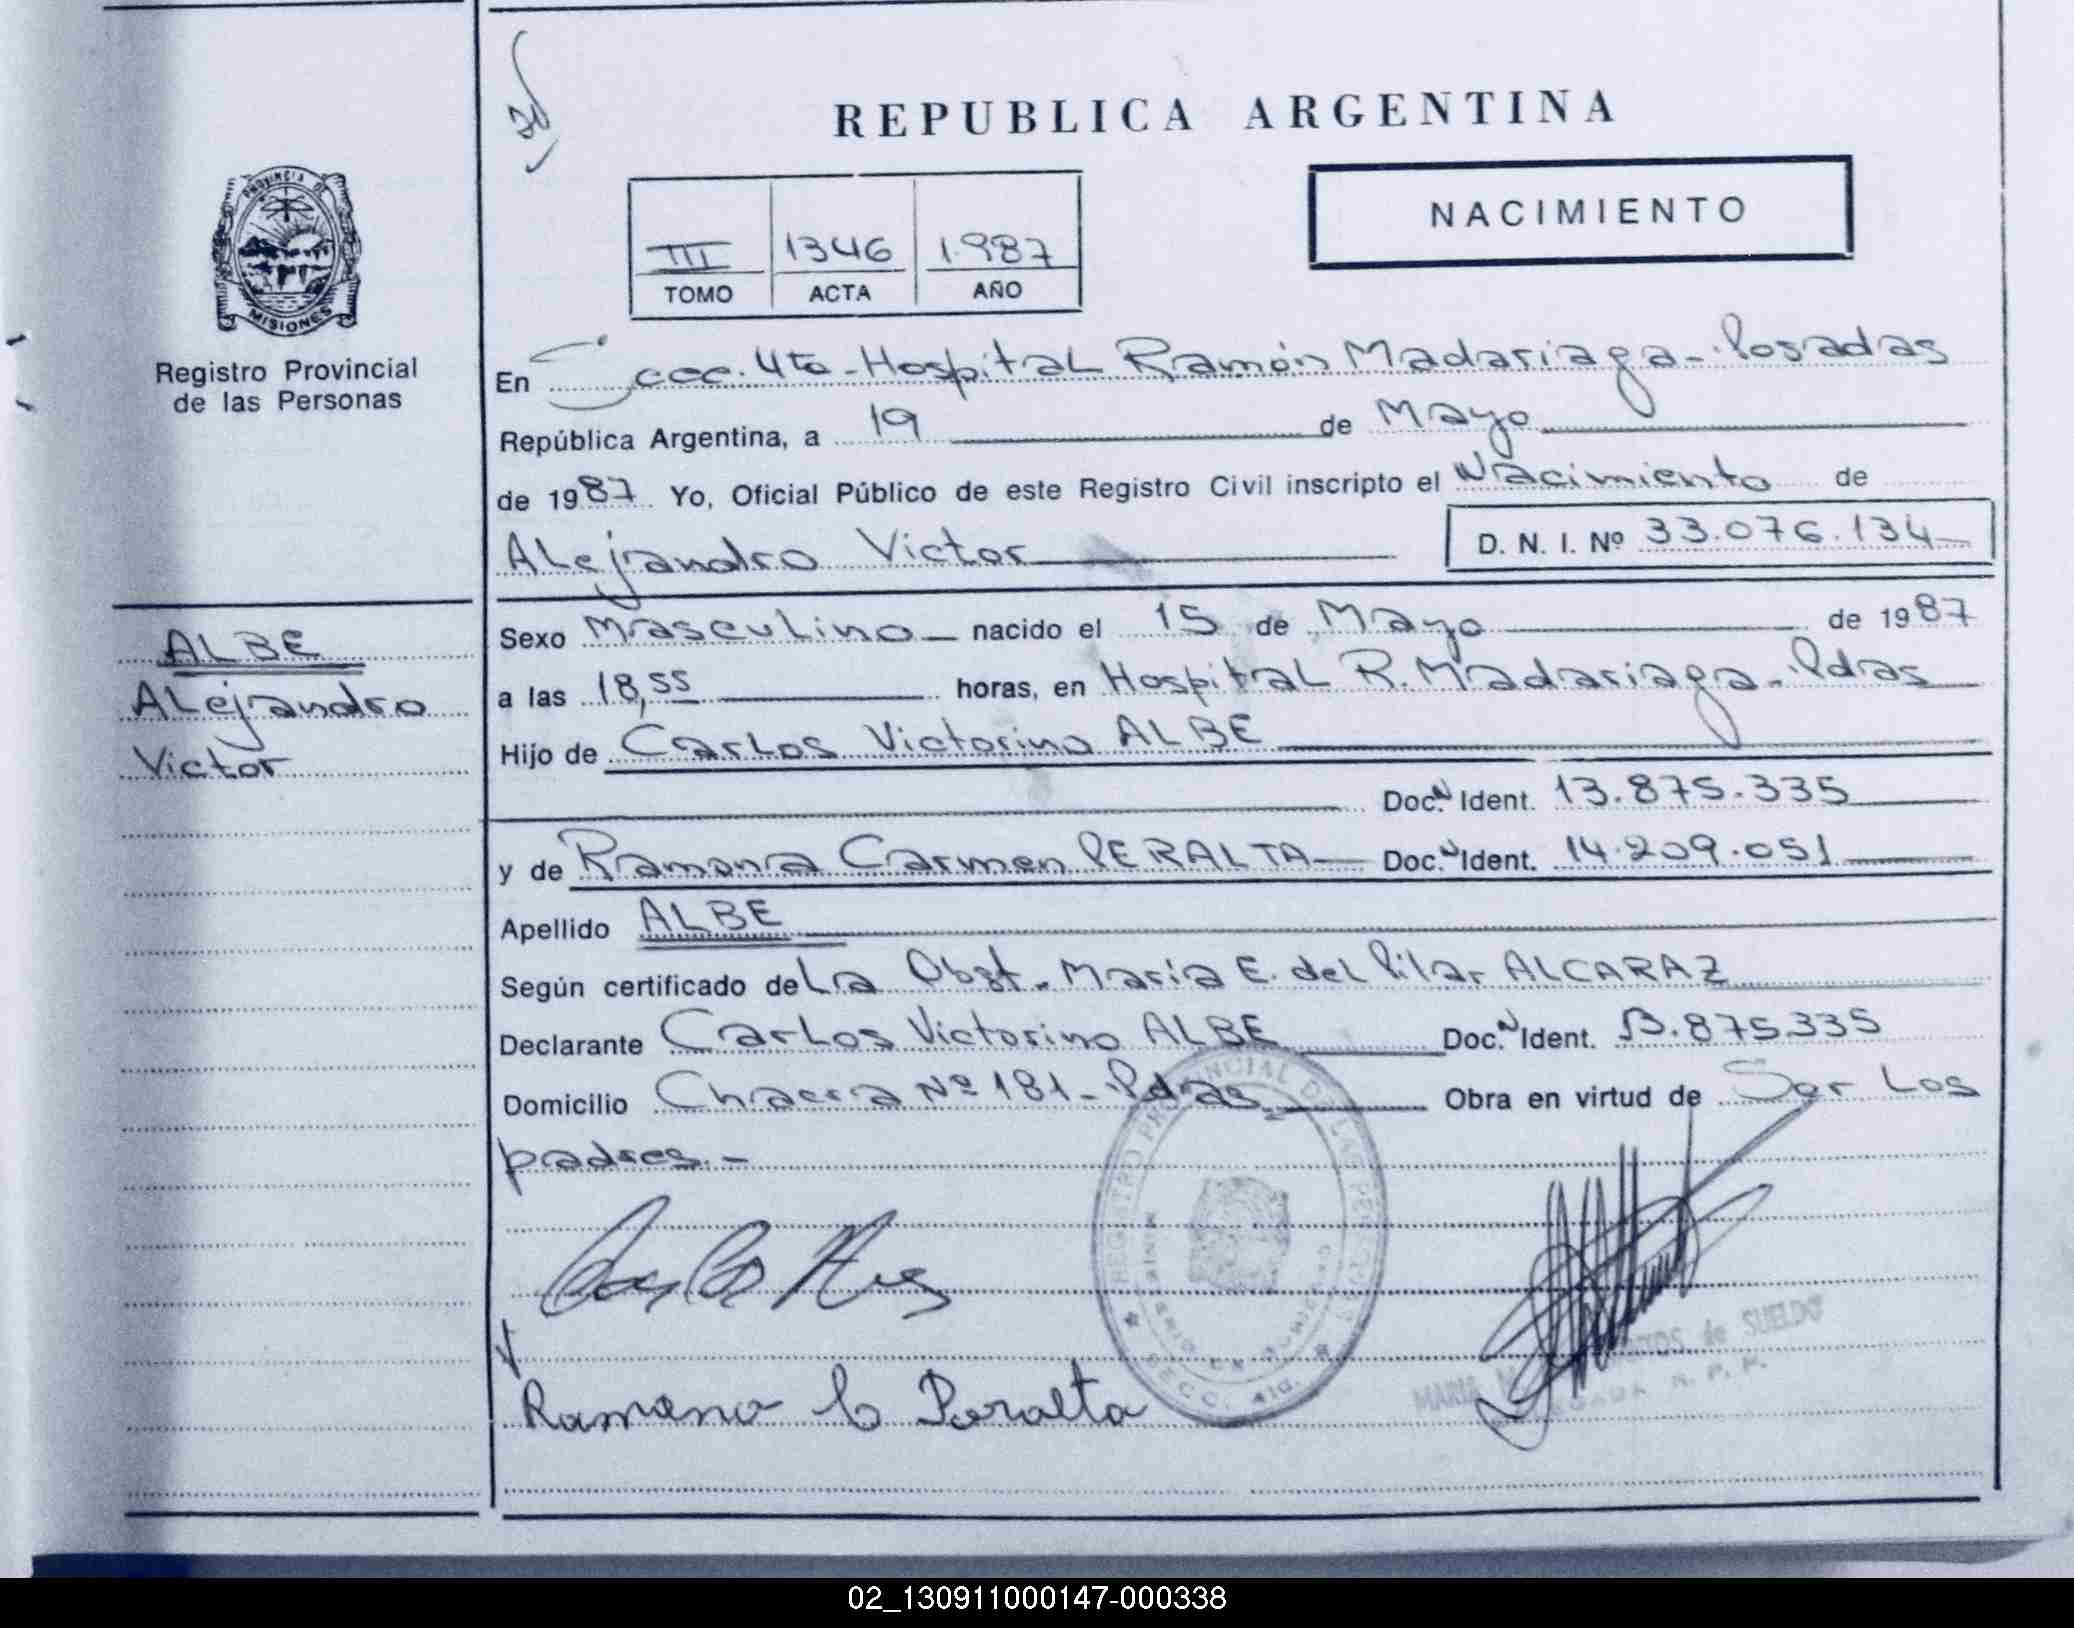 REPUBLICA ARGENTINA
NACIMIENTO
III 1346 1.987
TOMO ACTA AÑO
PROVINCIA DE
MISIONES
Registro Provincial
de las Personas
En Secc. 4ta - Hospital Ramón Madariaga - Posadas
República Argentina, a 19 de Mayo
de 1987 Yo, Oficial Público de este Registro Civil inscripto el Nacimiento de
Alejandro Victor
D. N. I. Nº 33.076.134
ALBE
Alejandro
Victor
Sexo Masculino nacido el 15 de Mayo de 1987
a las 18,55 horas, en Hospital R. Madariaga - Pdas
Hijo de Carlos Victorino ALBE
Doc. N Ident. 13.875.335
y de Ramona Carmen PERALTA Doc. N Ident. 14.209.051
Apellido ALBE
Según certificado de La Obst. María E. del Pilar ALCARAZ
Declarante Carlos Victorino ALBE Doc. N Ident. 13.875.335
Domicilio Chacra Nº 181 - Pdas Obra en virtud de Ser Los
padres. -
REGISTRO PROVINCIAL DE LAS PERSONAS
SECC. 4ta.
Ramona C Peralta
MARIA
de SUELDO
R. P. P.
02_130911000147-000338